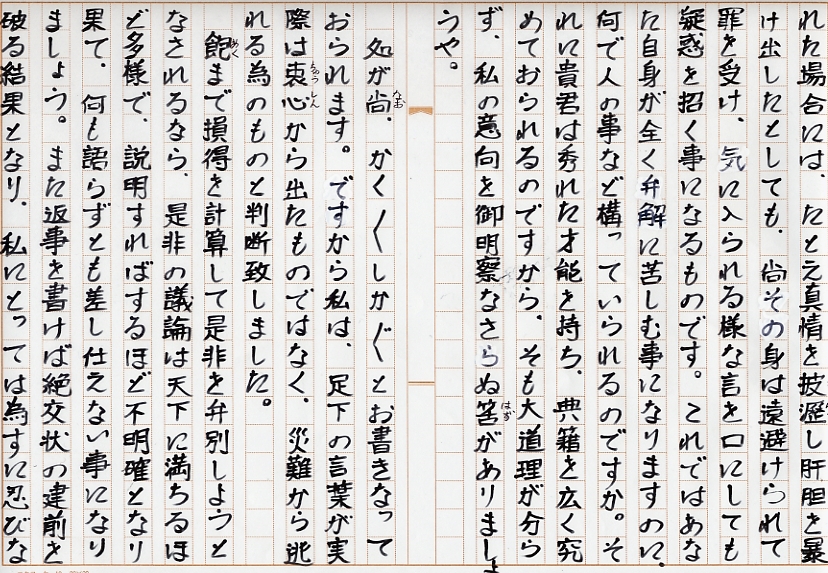 れた場合には、たとえ真情を披瀝し肝胆を暴
け出したとしても、尚その身は遠避けられて
罪を受け、気に入られる様な言を口にしても
疑惑を招く事になるものです。これではあな
た自身が全く弁解に苦しむ事になりますのに、
何で人の事など構っていられるのですか。そ
れに貴君は秀れた才能を持ち、典籍を広く究
めておられるのですから、そも大道理が分ら
ず、私の意向を御明察なさらぬ筈がありましょ
はず
うや。
処が尚、かく〳〵しかぐ〵とお書きなって
なお
おられます。ですから私は、足下の言葉が実
際は衷心から出たものではなく、災難から逃
ちゅうしん
れる為のものと判断致しました。
飽まで損得を計算して是非を弁別しようと
あく
なされるなら、是非の議論は天下に満ちるほ
ど多様で、説明すればするほど不明確となり
果て、何も語らずとも差し仕えない事になり
ましょう。また返事を書けば絶交状の建前を
破る結果となり、私にとっては為すに忍びな